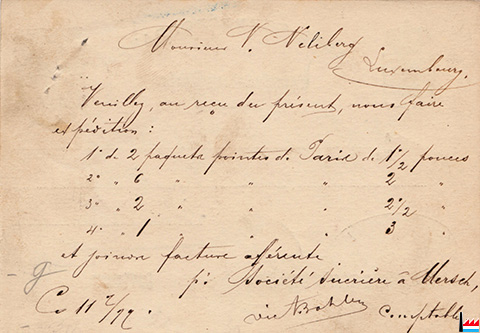 Monsieur V. Neliberg
Luxembourg.
Veuillez, au reçu du présent, nous faire
expédition :
1° de 2 paquets pointes de Paris de 1 1/2 pouces
2° " 6 " " " 2 "
3° " 2 " " " 2 1/2 "
4° " 1 " " " 3 "
et joindre facture afférente
pr Société Sucrière à Mersch,
Ce 11
Comptable